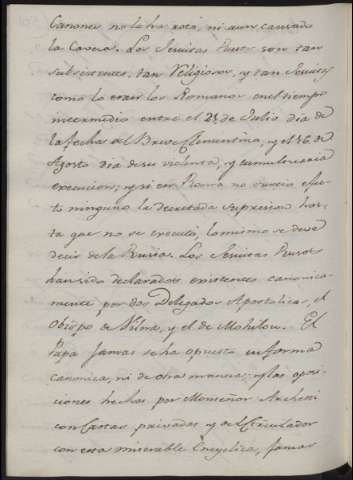 Canones no la ha rota, ni aun causado
la Corte. Los Jesuitas Rusos son tan
subsistentes, tan Religiosos, y tan Jesuitas
como lo eran los Romanos en el tiempo
intermedio entre el 21 de Julio dia de
la fecha del Breve Clementino, y el 16 de
Agosto dia de su violenta, y tumultuaria
execucion; y si en Roma no surtio efec-
to ninguno la decretada supresion has-
ta que no se executó, lo mismo se deve
decir de la Rusia. Los Jesuitas Rusos
han sido declarados existentes canonica-
mente por dos Delegados Apostolicos, el
Obispo de Vilna, y el de Mohilow. El
Papa jamas se ha opuesto en forma
canonica, ni de otra manera; y las oposi-
ciones hechas por Monseñor Archetti
con Cartas privadas y del Circulador
con esta miserable Encyclica, jamas